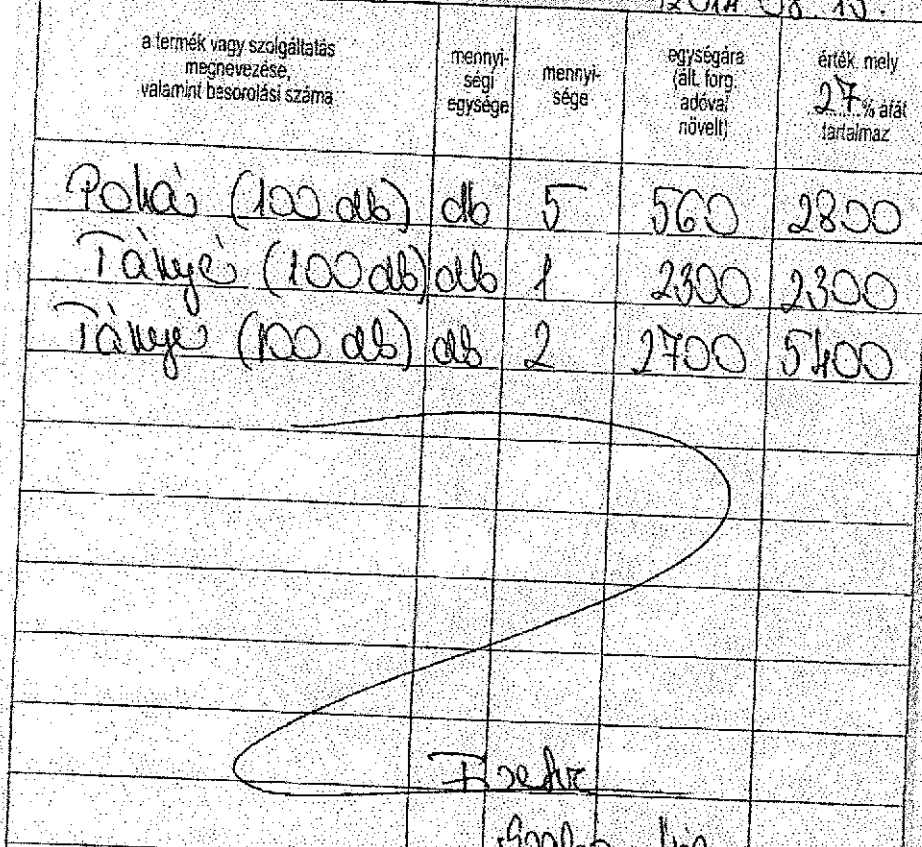 a termék vagy szolgáltatás
megnevezése,
valamint besorolási száma
mennyi-
ségi
egysége
mennyi-
sége
egységára
(ált. forg.
adóval
növelt)
érték, mely
27 % áfát
tartalmaz
Pohár (100 db) db 5 560 2800
Tányér (100 db) db 1 2300 2300
Tányér (100 db) db 2 2700 5400
Fizetve